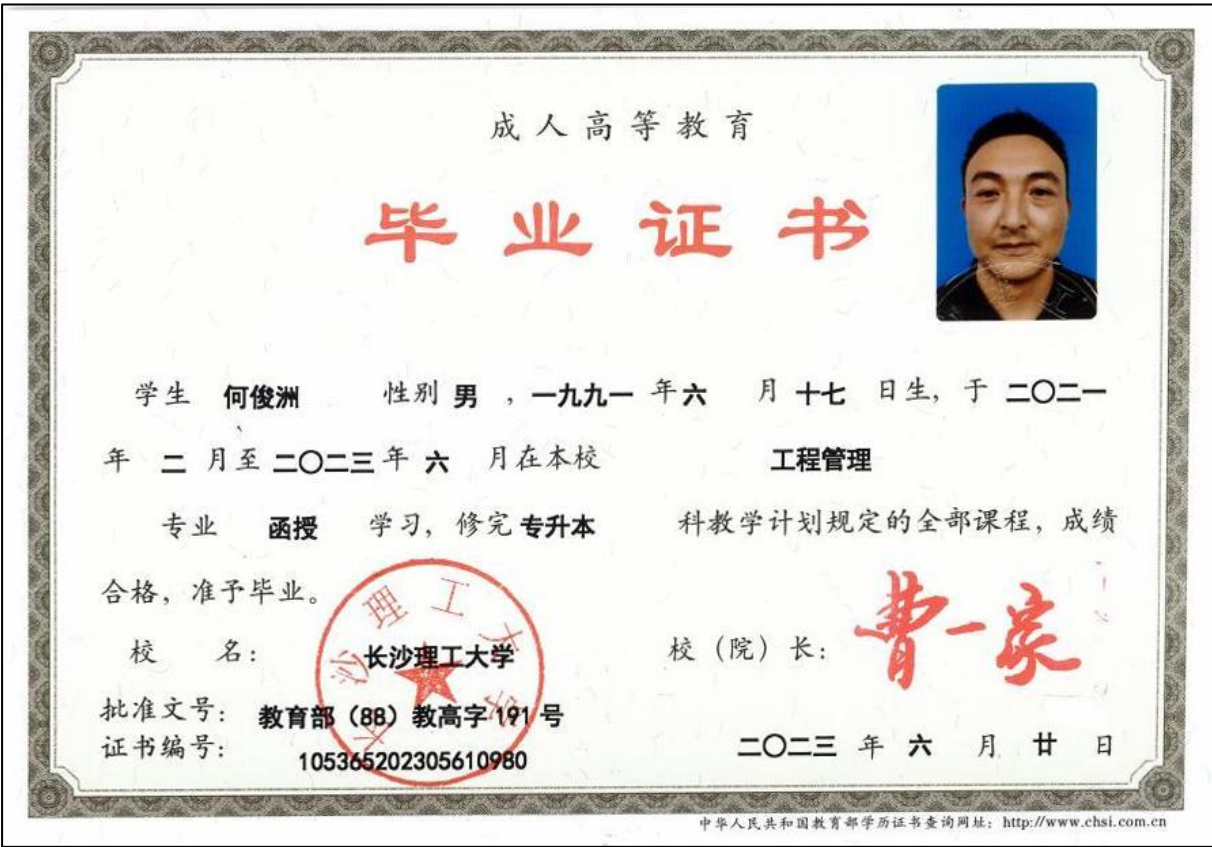 成人高等教育
毕业证书
学生 何俊洲 性别 男 ，一九九一 年 六 月 十七 日生，于 二〇二一
年 二 月至 二〇二三 年 六 月在本校 工程管理
专业 函授 学习，修完 专升本 科教学计划规定的全部课程，成绩
合格，准予毕业。
校 名： 长沙理工大学
校（院）长： 曹一家
批准文号： 教育部（88）教高字 191 号
证书编号： 105365202305610980
二〇二三 年 六 月 廿 日
长沙理工大学
中华人民共和国教育部学历证书查询网址：http://www.chsi.com.cn